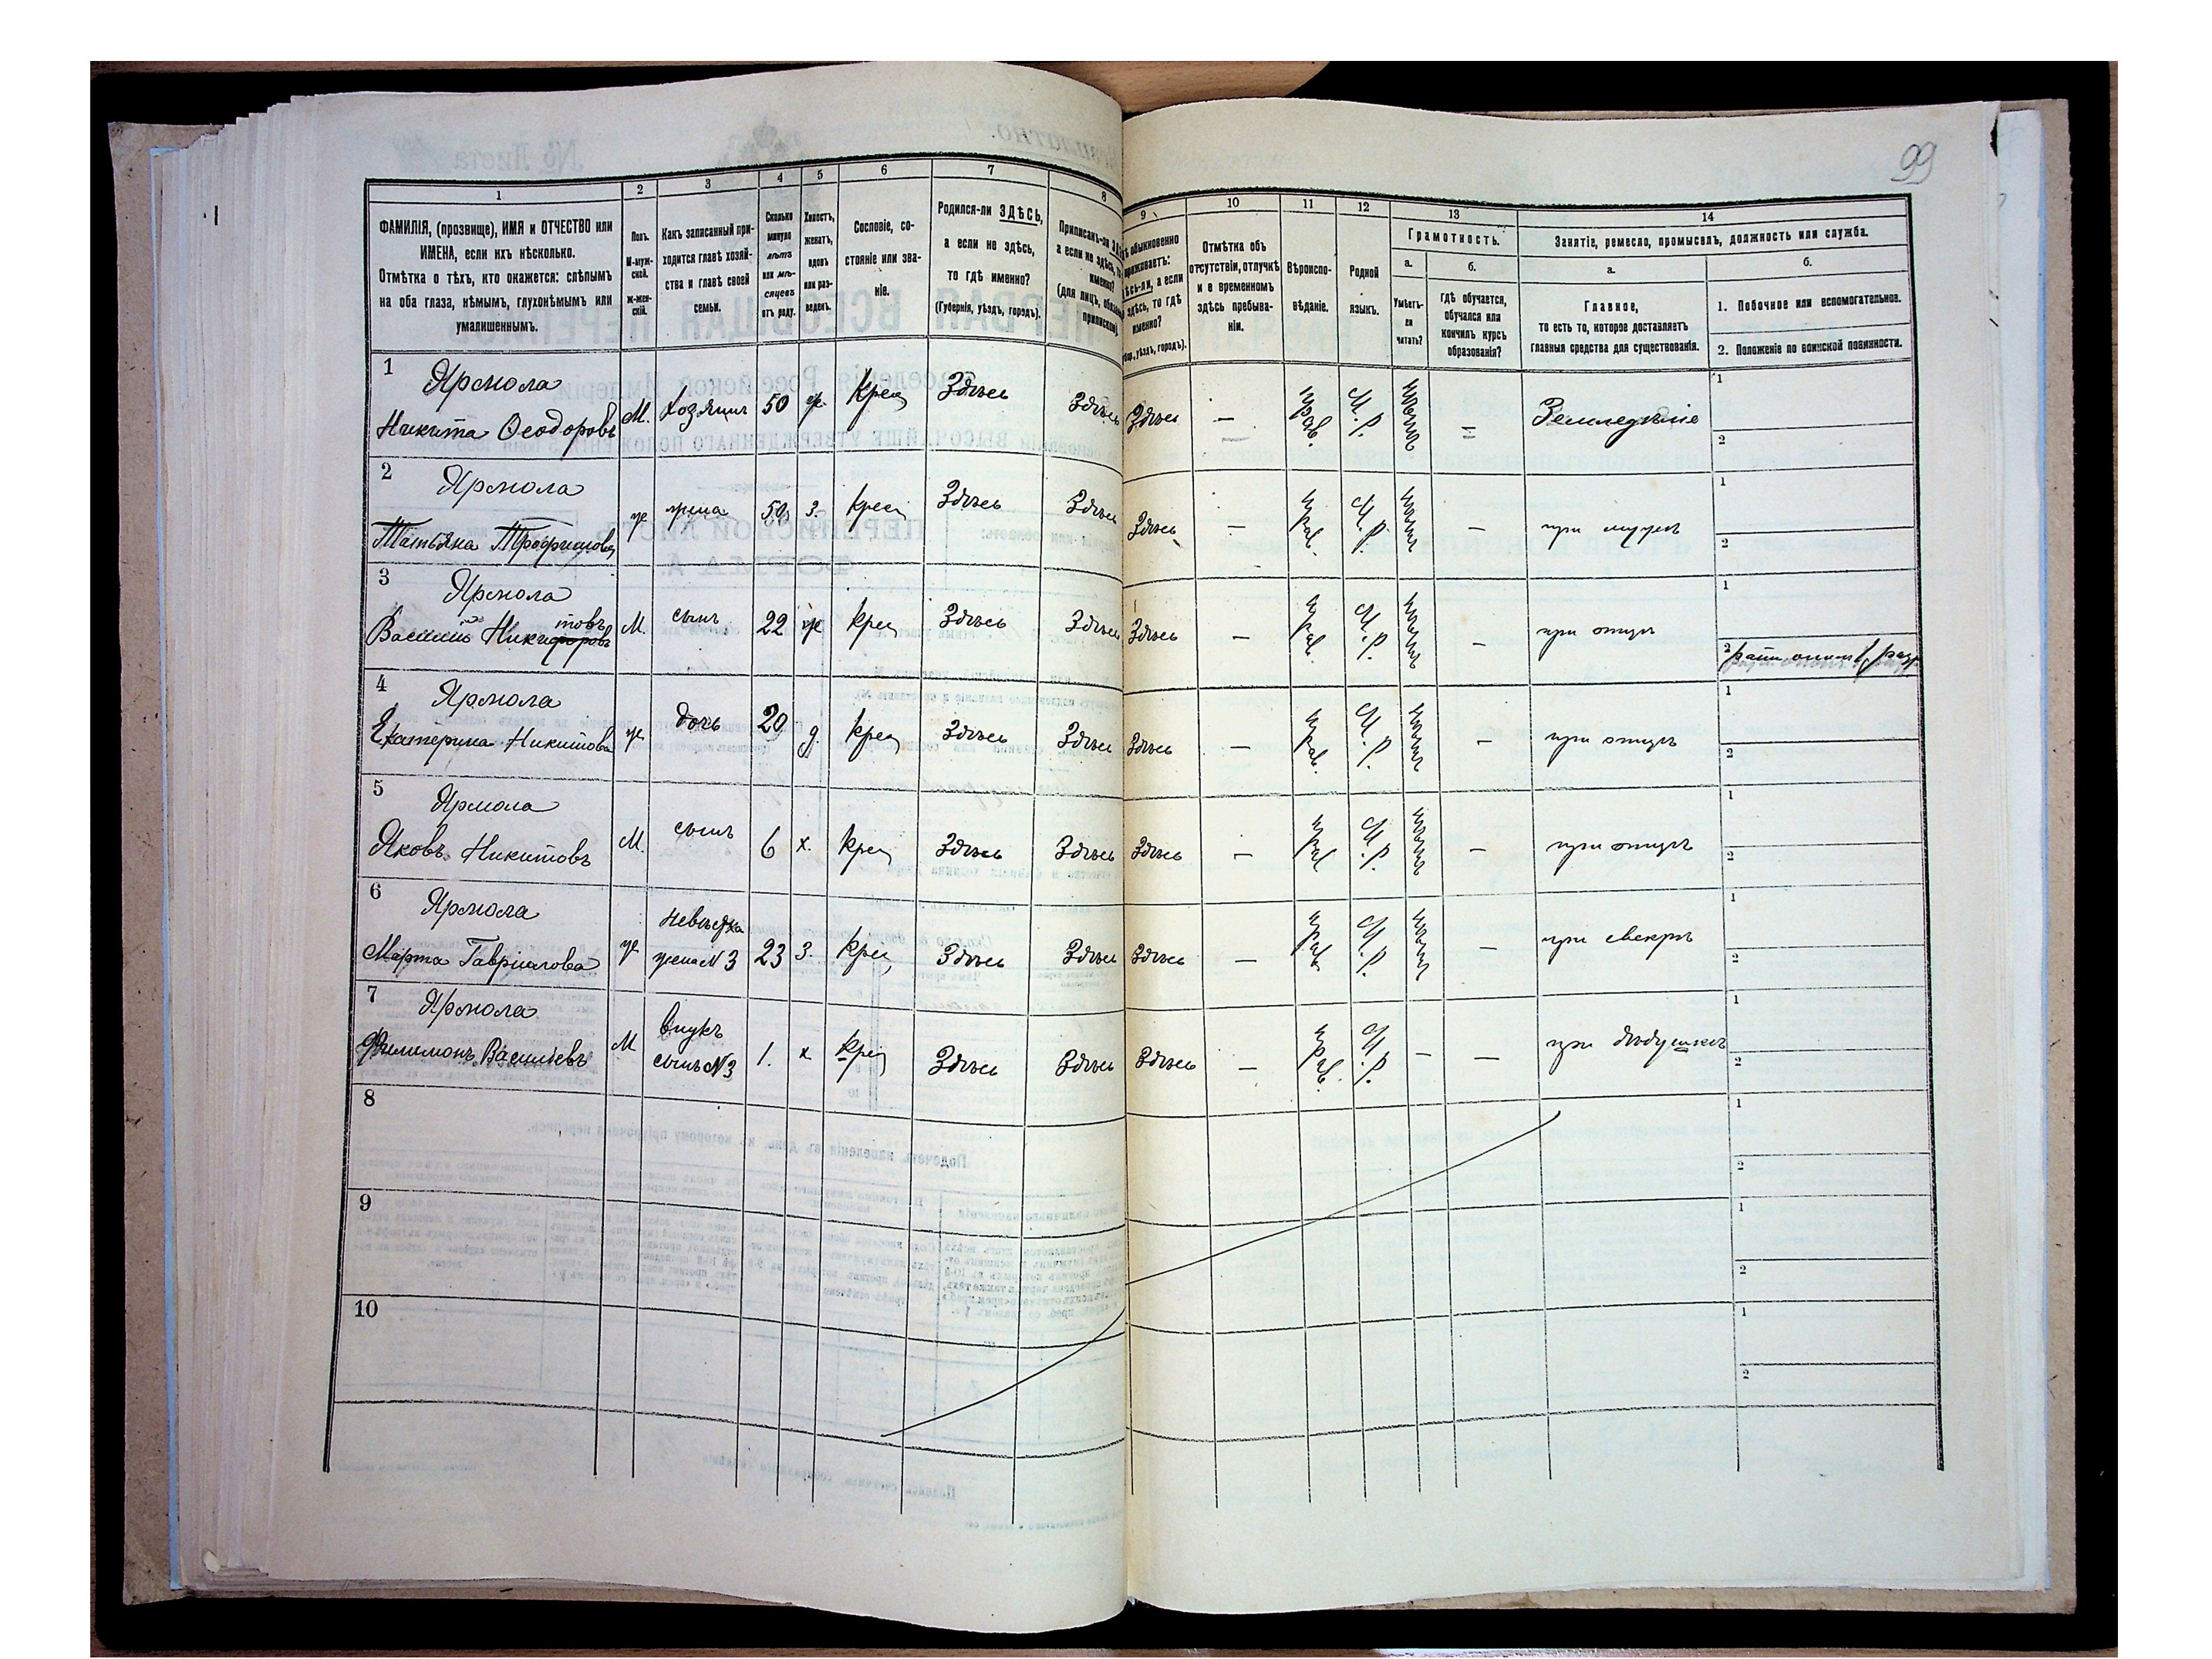 99
1 2 3 4 5 6 7 8 9 10 11 12 13 14
ФАМИЛІЯ, (прозвище), ИМЯ и ОТЧЕСТВО или
ИМЕНА, если ихъ нѣсколько.
Отмѣтка о тѣхъ, кто окажется: слѣпымъ
на оба глаза, нѣмымъ, глухонѣмымъ или
умалишеннымъ.
Полъ.
М-муж-
ской.
Ж-жен-
скій.
Какъ записанный при-
ходится главѣ хозяй-
ства и главѣ своей
семьи.
Сколько
минуло
лѣтъ
или мѣ-
сяцевъ
отъ роду.
Холостъ,
женатъ,
вдовъ
или раз-
веденъ.
Сословіе, со-
стояніе или зва-
ніе.
Родился-ли ЗДѢСЬ,
а если не здѣсь,
то гдѣ именно?
(Губернія, уѣздъ, городъ).
Приписанъ-ли
а если не здѣсь,
именно?
(для лицъ,
обыкновенно
проживаетъ:
а если
здѣсь, то гдѣ
именно?
уѣздъ, городъ).
Отмѣтка объ
отсутствіи, отлучкѣ
и о временномъ
здѣсь пребыва-
ніи.
Вѣроиспо-
вѣданіе.
Родной
языкъ.
Грамотность.
а. б.
Умѣетъ-
ли
читать?
Гдѣ обучается,
обучался или
кончилъ курсъ
образованія?
Занятіе, ремесло, промыселъ, должность или служба.
а. б.
Главное,
то есть то, которое доставляетъ
главныя средства для существованія.
1. Побочное или вспомогательное.
2. Положеніе по воинской повинности.
1 Ярмола
Никита Ѳеодоровъ М. Хозяинъ 50 ж. Крес Здѣсь Здѣсь Здѣсь — прав. М.Р. — Земледѣліе 1 2
2 Ярмола
Татьяна Трофимова ж жена 50 З. Крес Здѣсь Здѣсь Здѣсь — прав. М.Р. — при мужѣ 1 2
3 Ярмола
Василій Никитовъ М. сынъ 22 ж Крес Здѣсь Здѣсь Здѣсь — прав. М.Р. — при отцѣ 1 2
4 Ярмола
Екатерина Никитова ж. дочь 20 д. Крес Здѣсь Здѣсь Здѣсь — прав. М.Р. — при отцѣ 1 2
5 Ярмола
Яковъ Никитовъ М. сынъ 6 х. Крес Здѣсь Здѣсь Здѣсь — прав М.Р. — при отцѣ 1 2
6 Ярмола невѣстка
Марта Гавріилова ж жена N 3 23 З. Крес Здѣсь Здѣсь Здѣсь — прав. М.Р. — при свекрѣ 1 2
7 Ярмола внукъ
Филимонъ Васильевъ М сынъ N 3 1. х Крес Здѣсь Здѣсь Здѣсь — прав. М.Р. — — при дѣдушкѣ 1 2
8 1 2
9 1 2
10 1 2